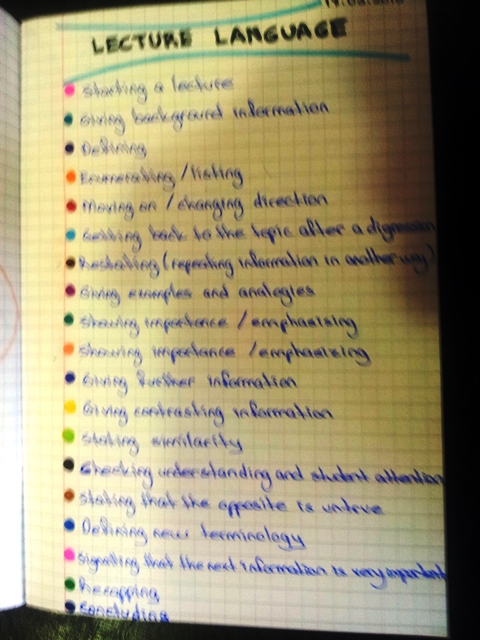 LECTURE LANGUAGE
Starting a lecture
Giving background information
Defining
Enumerating / listing
Moving on / changing direction
Getting back to the topic after a digression
Restating (repeating information in another way)
Giving examples and analogies
Showing importance / emphasising
Showing importance / emphasizing
Giving further information
Giving contrasting information
Stating similarity
Checking understanding and student attention
Stating that the opposite is untrue
Defining new terminology
Signalling that the next information is very important
Recapping
Concluding